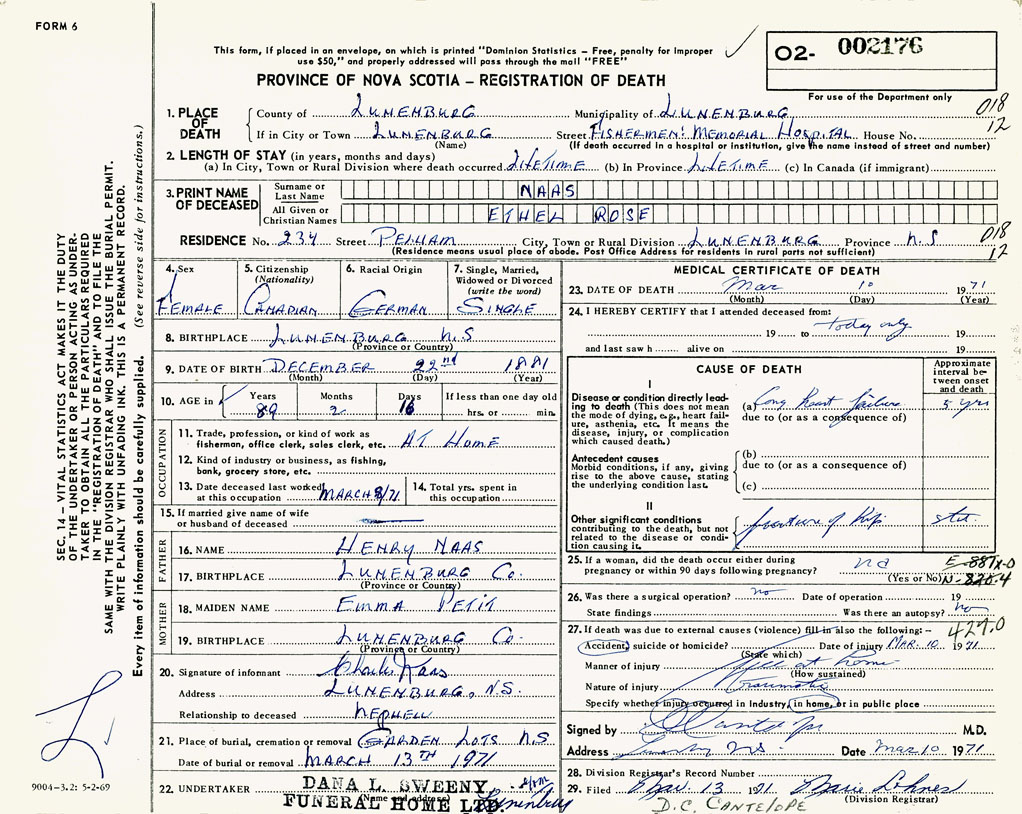 FORM 6
This form, if placed in an envelope, on which is printed "Dominion Statistics – Free, penalty for improper
use $50," and properly addressed will pass through the mail "FREE"
02- 002176
PROVINCE OF NOVA SCOTIA – REGISTRATION OF DEATH
For use of the Department only
1. PLACE OF DEATH
County of LUNENBURG Municipality of LUNENBURG 018
If in City or Town LUNENBURG Street FISHERMEN'S MEMORIAL HOSPITAL House No. 12
(Name) (If death occurred in a hospital or institution, give the name instead of street and number)
2. LENGTH OF STAY (in years, months and days)
(a) In City, Town or Rural Division where death occurred LIFETIME (b) In Province LIFETIME (c) In Canada (if immigrant)
3. PRINT NAME OF DECEASED
Surname or Last Name NAAS
All Given or Christian Names ETHEL ROSE
RESIDENCE No. 234 Street PELHAM City, Town or Rural Division LUNENBURG Province N.S 018
(Residence means usual place of abode. Post Office Address for residents in rural parts not sufficient) 12
4. Sex FEMALE
5. Citizenship (Nationality) CANADIAN
6. Racial Origin GERMAN
7. Single, Married, Widowed or Divorced (write the word) SINGLE
8. BIRTHPLACE LUNENBURG N.S
(Province or Country)
9. DATE OF BIRTH DECEMBER 22nd 1881
(Month) (Day) (Year)
10. AGE in Years 89 Months 2 Days 16 If less than one day old hrs. or min.
OCCUPATION
11. Trade, profession, or kind of work as fisherman, office clerk, sales clerk, etc. AT HOME
12. Kind of industry or business, as fishing, bank, grocery store, etc.
13. Date deceased last worked at this occupation MARCH 8/71
14. Total yrs. spent in this occupation
15. If married give name of wife or husband of deceased
FATHER
16. NAME HENRY NAAS
17. BIRTHPLACE LUNENBURG CO.
(Province or Country)
MOTHER
18. MAIDEN NAME EMMA PETIT
19. BIRTHPLACE LUNENBURG CO.
(Province or Country)
20. Signature of informant Charles Naas
Address LUNENBURG, N.S.
Relationship to deceased NEPHEW
21. Place of burial, cremation or removal GARDEN LOTS N.S
Date of burial or removal MARCH 13TH 1971
22. UNDERTAKER DANA L. SWEENY
(Name and address)
FUNERAL HOME LTD.
MEDICAL CERTIFICATE OF DEATH
23. DATE OF DEATH Mar 10 1971
(Month) (Day) (Year)
24. I HEREBY CERTIFY that I attended deceased from:
19 to today only 19
and last saw h alive on 19
CAUSE OF DEATH
Approximate interval between onset and death
I
Disease or condition directly leading to death (This does not mean the mode of dying, e.g., heart failure, asthenia, etc. It means the disease, injury, or complication which caused death.)
(a) Cong heart failure 5 yrs
due to (or as a consequence of)
Antecedent causes
Morbid conditions, if any, giving rise to the above cause, stating the underlying condition last.
(b)
due to (or as a consequence of)
(c)
II
Other significant conditions contributing to the death, but not related to the disease or condition causing it.
fracture of hip
25. If a woman, did the death occur either during pregnancy or within 90 days following pregnancy? no
(Yes or No)
26. Was there a surgical operation? no Date of operation 19
State findings Was there an autopsy? no
27. If death was due to external causes (violence) fill in also the following:– 427.0
Accident, suicide or homicide? Date of injury MAR. 10 1971
(State which)
Manner of injury fell at home
(How sustained)
Nature of injury traumatic
Specify whether injury occurred in Industry, in home, or in public place
Signed by M.D.
Address N.S. Date Mar 10 1971
28. Division Registrar's Record Number
29. Filed Mar. 13 1971 Marie Lohnes
(Division Registrar)
D.C. CANTELOPE
SEC. 14 – VITAL STATISTICS ACT MAKES IT THE DUTY
OF THE UNDERTAKER OR PERSON ACTING AS UNDER-
TAKER TO OBTAIN ALL THE PARTICULARS REQUIRED
IN THE "REGISTRATION OF DEATH" AND TO FILE THE
SAME WITH THE DIVISION REGISTRAR WHO SHALL ISSUE THE BURIAL PERMIT.
WRITE PLAINLY WITH UNFADING INK. THIS IS A PERMANENT RECORD.
Every item of information should be carefully supplied. (See reverse side for instructions.)
9004-3.2: 5-2-69